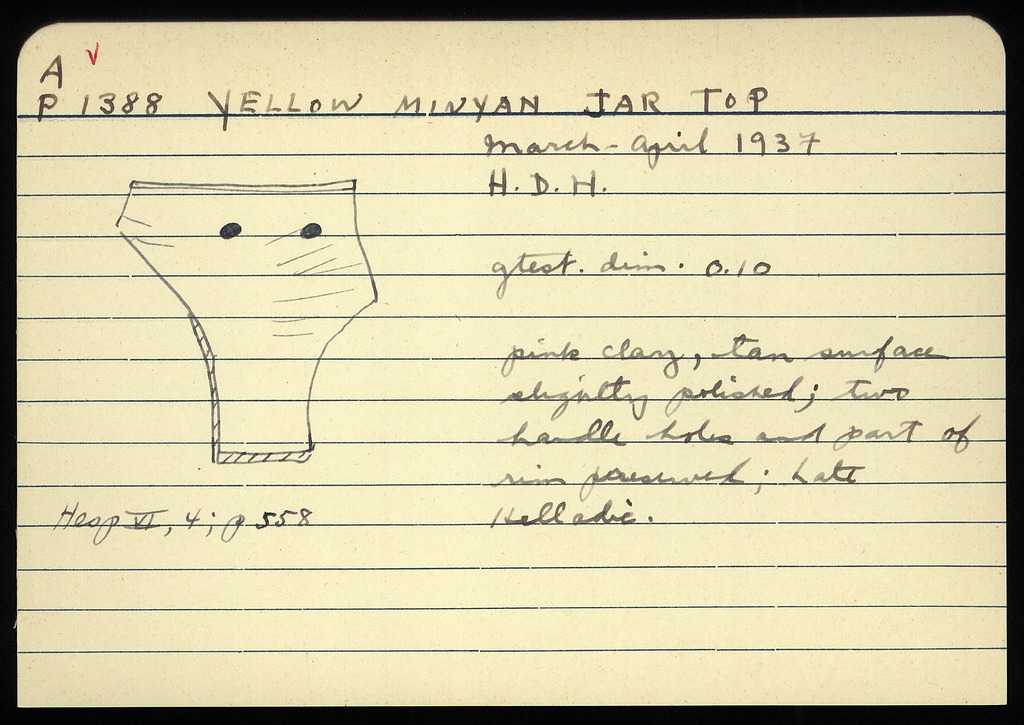 A v
P 1388 YELLOW MINYAN JAR TOP
March - April 1937
H. D. H.
gtest. dim. 0.10
pink clay, tan surface
slightly polished; two
handle holes and part of
rim preserved; Late
Helladic.
Hesp VI, 4; p 558